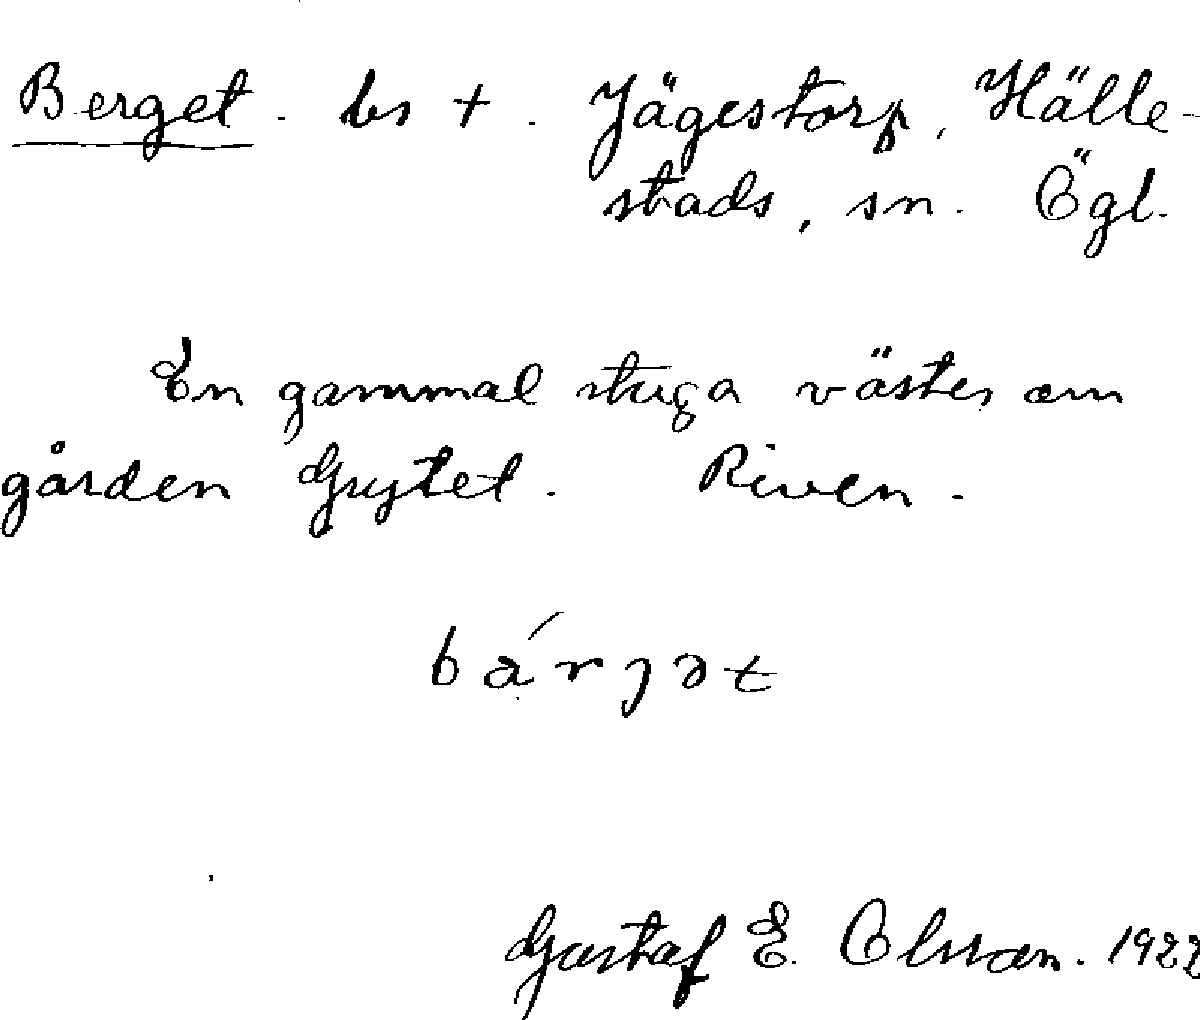 Berget. bs +. Jägestorp, Hälle-
stads, sn. Ögl.
En gammal stuga väster om
gården Grytet. Riven.
bárȷət
Gustaf E. Olsson. 1922